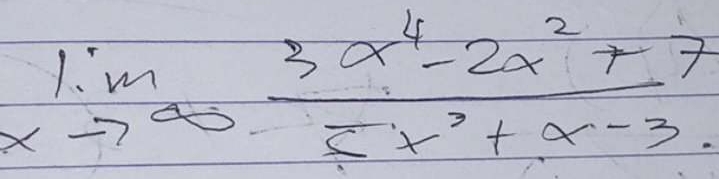 lim x→∞ (3x⁴ - 2x² + 7) / (5x³ + x - 3)